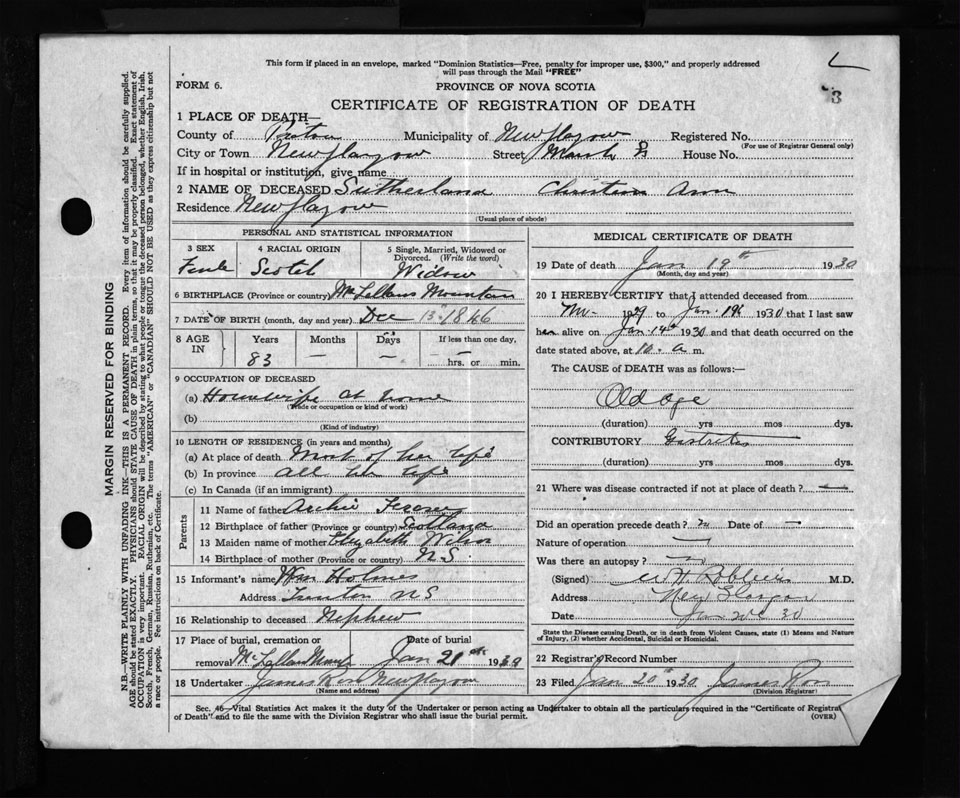 This form if placed in an envelope, marked "Dominion Statistics—Free, penalty for improper use, $300," and properly addressed
will pass through the Mail "FREE"
FORM 6.
PROVINCE OF NOVA SCOTIA
3
CERTIFICATE OF REGISTRATION OF DEATH
1 PLACE OF DEATH—
County of Pictou Municipality of New Glasgow Registered No.
(For use of Registrar General only)
City or Town New Glasgow Street Marsh House No.
If in hospital or institution, give name
2 NAME OF DECEASED Sutherland Christena Ann
Residence New Glasgow
(Usual place of abode)
PERSONAL AND STATISTICAL INFORMATION
3 SEX 4 RACIAL ORIGIN 5 Single, Married, Widowed or
Divorced. (Write the word)
Female Scotch Widow
6 BIRTHPLACE (Province or country) McLellans Mountain
7 DATE OF BIRTH (month, day and year) Dec 13 1846
8 AGE IN Years Months Days If less than one day,
83 — — hrs. or min.
9 OCCUPATION OF DECEASED
(a) Housewife at home
(Trade or occupation or kind of work)
(b)
(Kind of industry)
10 LENGTH OF RESIDENCE (in years and months)
(a) At place of death Most of her life
(b) In province all her life
(c) In Canada (if an immigrant)
Parents
11 Name of father Archie Fraser
12 Birthplace of father (Province or country) Scotland
13 Maiden name of mother Elizabeth
14 Birthplace of mother (Province or country) N.S
15 Informant's name Wm Holmes
Address N S
16 Relationship to deceased Nephew
17 Place of burial, cremation or Date of burial
removal McLellans Mount Jan 21 1930
18 Undertaker James New Glasgow
(Name and address)
MEDICAL CERTIFICATE OF DEATH
19 Date of death Jan 19th 1930
(Month, day and year)
20 I HEREBY CERTIFY that I attended deceased from
1929 to Jan. 19th 1930 that I last saw
her alive on Jan. 14th 1930 and that death occurred on
date stated above, at 10. a m.
The CAUSE of DEATH was as follows:—
Old age
(duration) yrs mos dys.
CONTRIBUTORY Gastritis
(duration) yrs. mos. dys.
21 Where was disease contracted if not at place of death? —
Did an operation precede death? Date of —
Nature of operation —
Was there an autopsy?
(Signed) M.D.
Address New Glasgow
Date Jan 30
State the Disease causing Death, or in death from Violent Causes, state (1) Means and Nature
of Injury, (2) whether Accidental, Suicidal or Homicidal.
22 Registrar's Record Number
23 Filed Jan 20th 1930 James
(Division Registrar)
Sec. 46—Vital Statistics Act makes it the duty of the Undertaker or Person acting as Undertaker to obtain all the particulars required in the "Certificate of Registra
of Death" and to file the same with the Division Registrar who shall issue the burial permit.
(OVER)
MARGIN RESERVED FOR BINDING
N.B.—WRITE PLAINLY WITH UNFADING INK—THIS IS A PERMANENT RECORD. Every item of information should be carefully supplied.
AGE should be stated EXACTLY. PHYSICIANS should STATE CAUSE OF DEATH in plain terms, so that it may be properly classified. Exact statement of
OCCUPATION is very important. RACIAL ORIGIN will be described by stating to what people or tongue the deceased person belonged, whether English, Irish,
Scotch, French, German, Russian, Ruthenian, etc. The terms "AMERICAN" or "CANADIAN" SHOULD NOT BE USED as they express citizenship but not
a race or people. Fee instructions on back of Certificate.